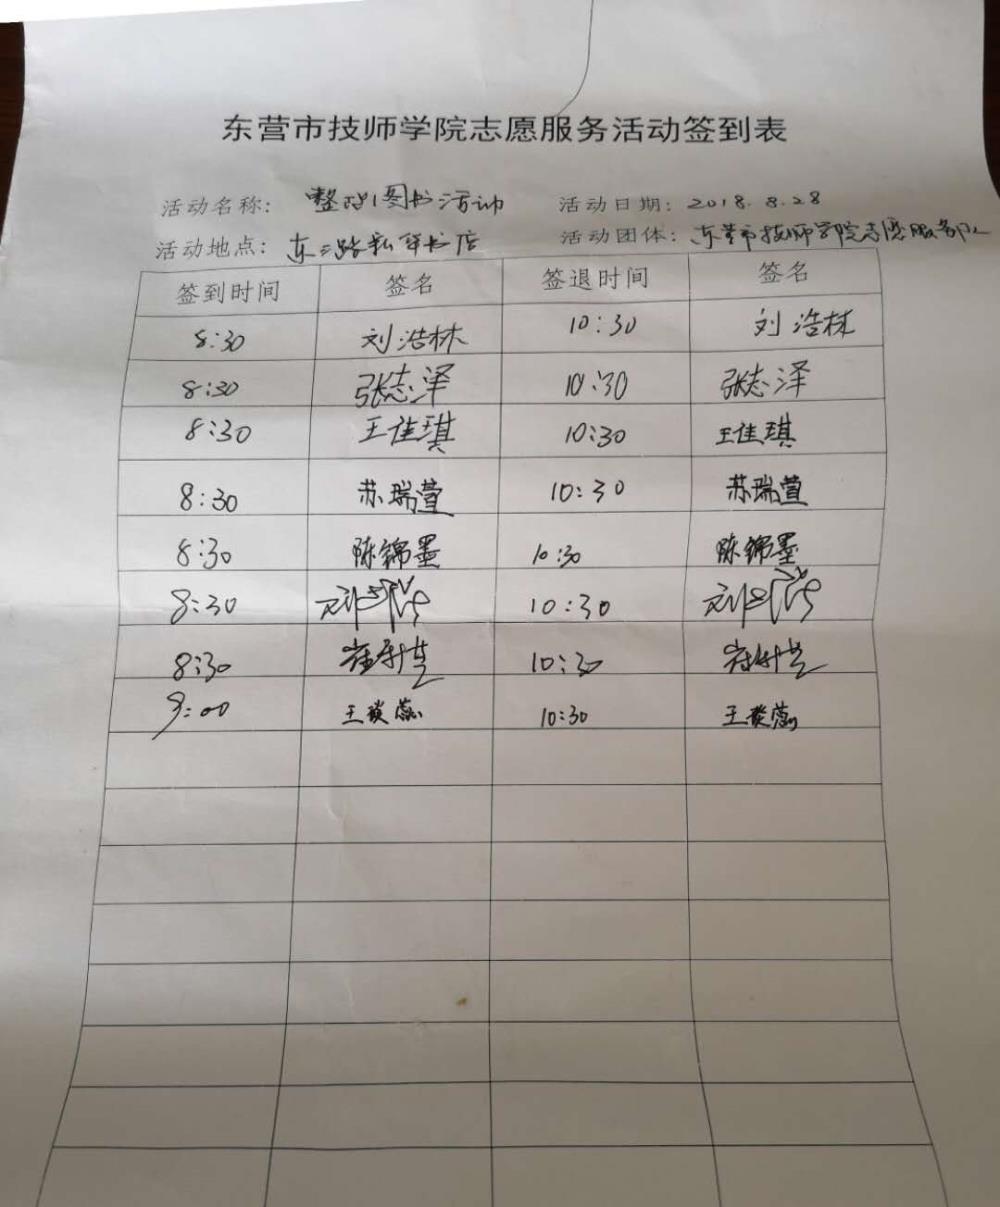 东营市技师学院志愿服务活动签到表
活动名称: 整理图书活动 活动日期: 2018.8.28
活动地点: 东二路新华书店 活动团体: 东营市技师学院志愿服务队
签到时间 签名 签退时间 签名
8:30 刘浩林 10:30 刘浩林
8:30 张志泽 10:30 张志泽
8:30 王佳琪 10:30 王佳琪
8:30 苏瑞萱 10:30 苏瑞萱
8:30 陈锦墨 10:30 陈锦墨
8:30 10:30
8:30 10:30
9:00 王 蕊 10:30 王 蕊